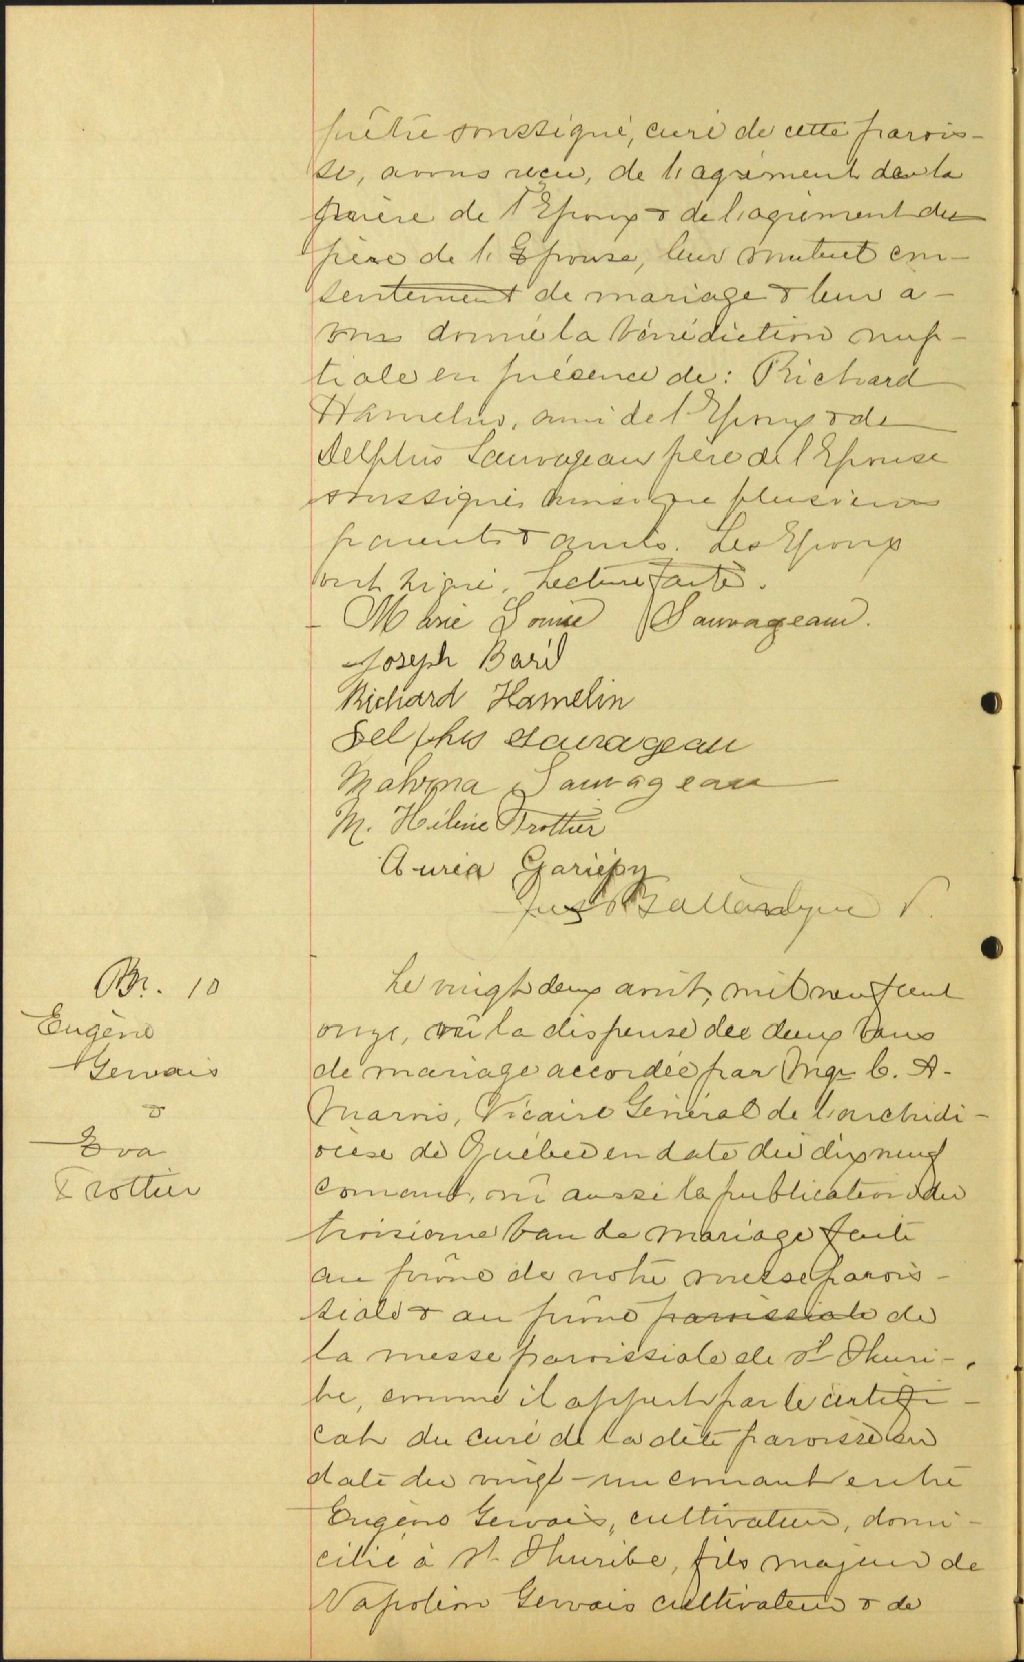 prêtre soussigné, curé de cette parois-
se, avons reçu, de l'agrément de la
mère de l'Epoux & de l'agrément du
père de l'Epouse, leur mutuel con-
sentement de mariage & leur a-
vons donné la bénédiction nup-
tiale en présence de : Richard
Hamelin, ami de l'Epoux & de
Delphis Sauvageau père de l'Epouse
soussignés ainsi que plusieurs
parents & amis. Les Epoux
ont signé. Lecture faite.
Marie Louise Sauvageau.
Joseph Baril
Richard Hamelin
Delphis Sauvageau
Malvina Sauvageau
M. Hélène Trottier
Auréa Gariépy
Ballantyne P.
M. 10
Eugène
Gervais
&
Eva
Trottier
Le vingt deux août, mil neuf cent
onze, vû la dispense de deux bans
de mariage accordée par Mgr C. A.
Marois, Vicaire Général de l'archidi-
ocèse de Québec en date du dix neuf
courant, vû aussi la publication du
troisième ban de mariage faite
au prône de notre messe parois-
siale & au prône paroissiale de
la messe paroissiale de St Thuri-
be, comme il appert par le certifi-
cat du curé de la dite paroisse en
date du vingt-un courant entre
Eugène Gervais, cultivateur, domi-
cilié à St Thuribe, fils majeur de
Napoléon Gervais cultivateur & de